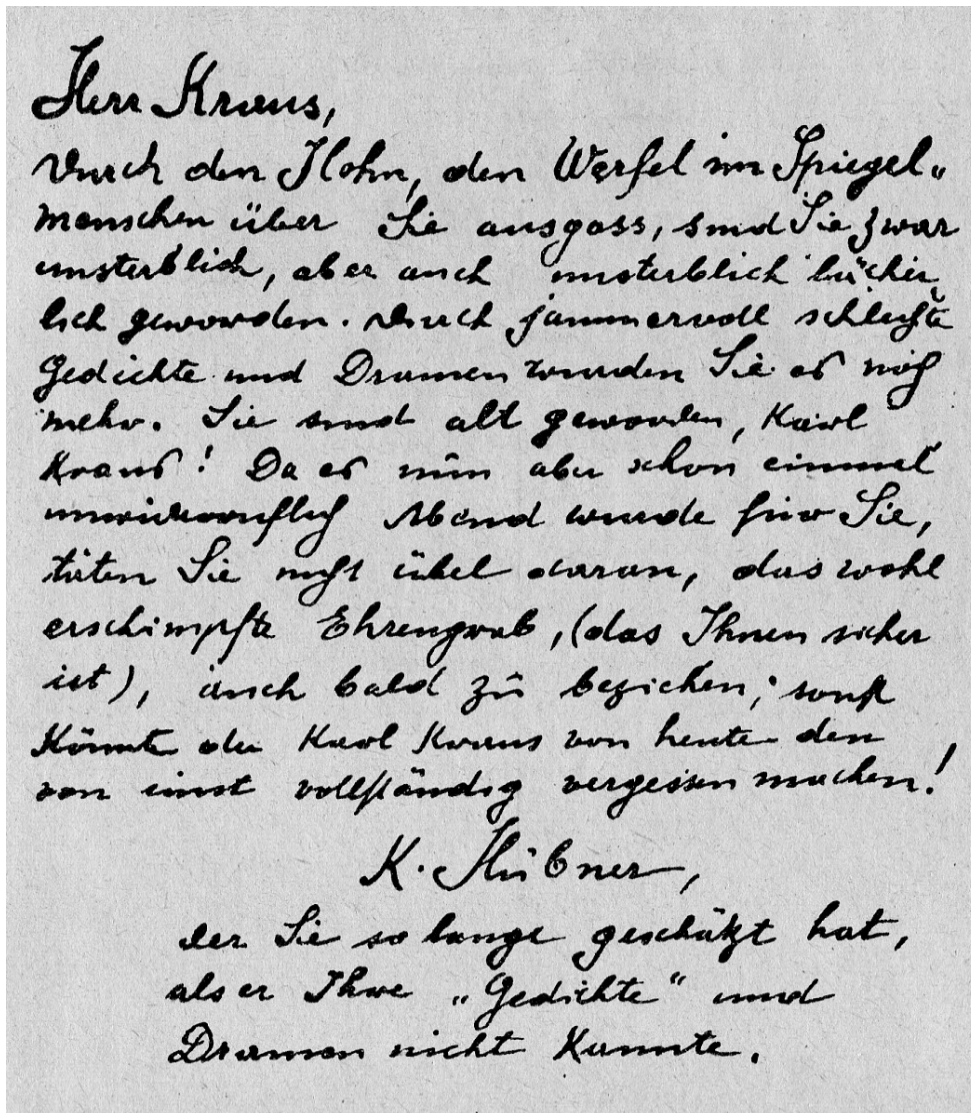 Herr Kraus,
Durch den Hohn, den Werfel im Spiegel„
menschen über Sie ausgoss, sind Sie zwar
unsterblich, aber auch unsterblich lächer„
lich geworden. Durch jammervoll schlechte
Gedichte und Dramen wurden Sie es noch
mehr. Sie sind alt geworden, Karl
Kraus! Da es nun aber schon einmal
unwiderruflich Abend wurde für Sie,
täten Sie nicht übel daran, das wohl
erschimpfte Ehrengrab, (das Ihnen sicher
ist), auch bald zu beziehen; sonst
könnte der Karl Kraus von heute den
von einst vollständig vergessen machen!
K. Hübner,
der Sie so lange geschätzt hat,
als er Ihre „Gedichte“ und
Dramen nicht kannte.